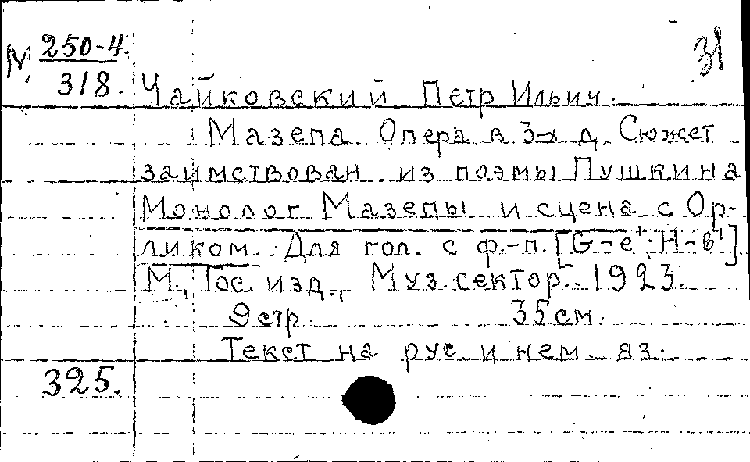 М 250-4. 31
318. Чайковский Петр Ильич.
Мазепа. Опера в 3-х д. Сюжет
заимствован из поэмы Пушкина
Монолог Мазепы и сцена с Ор-
ликом. Для гол. с ф.-п. [G-e¹; H-
М., Гос. изд., Муз. сектор. 1923.
9 стр. 35 см.
Текст на рус и нем. яз.
325.